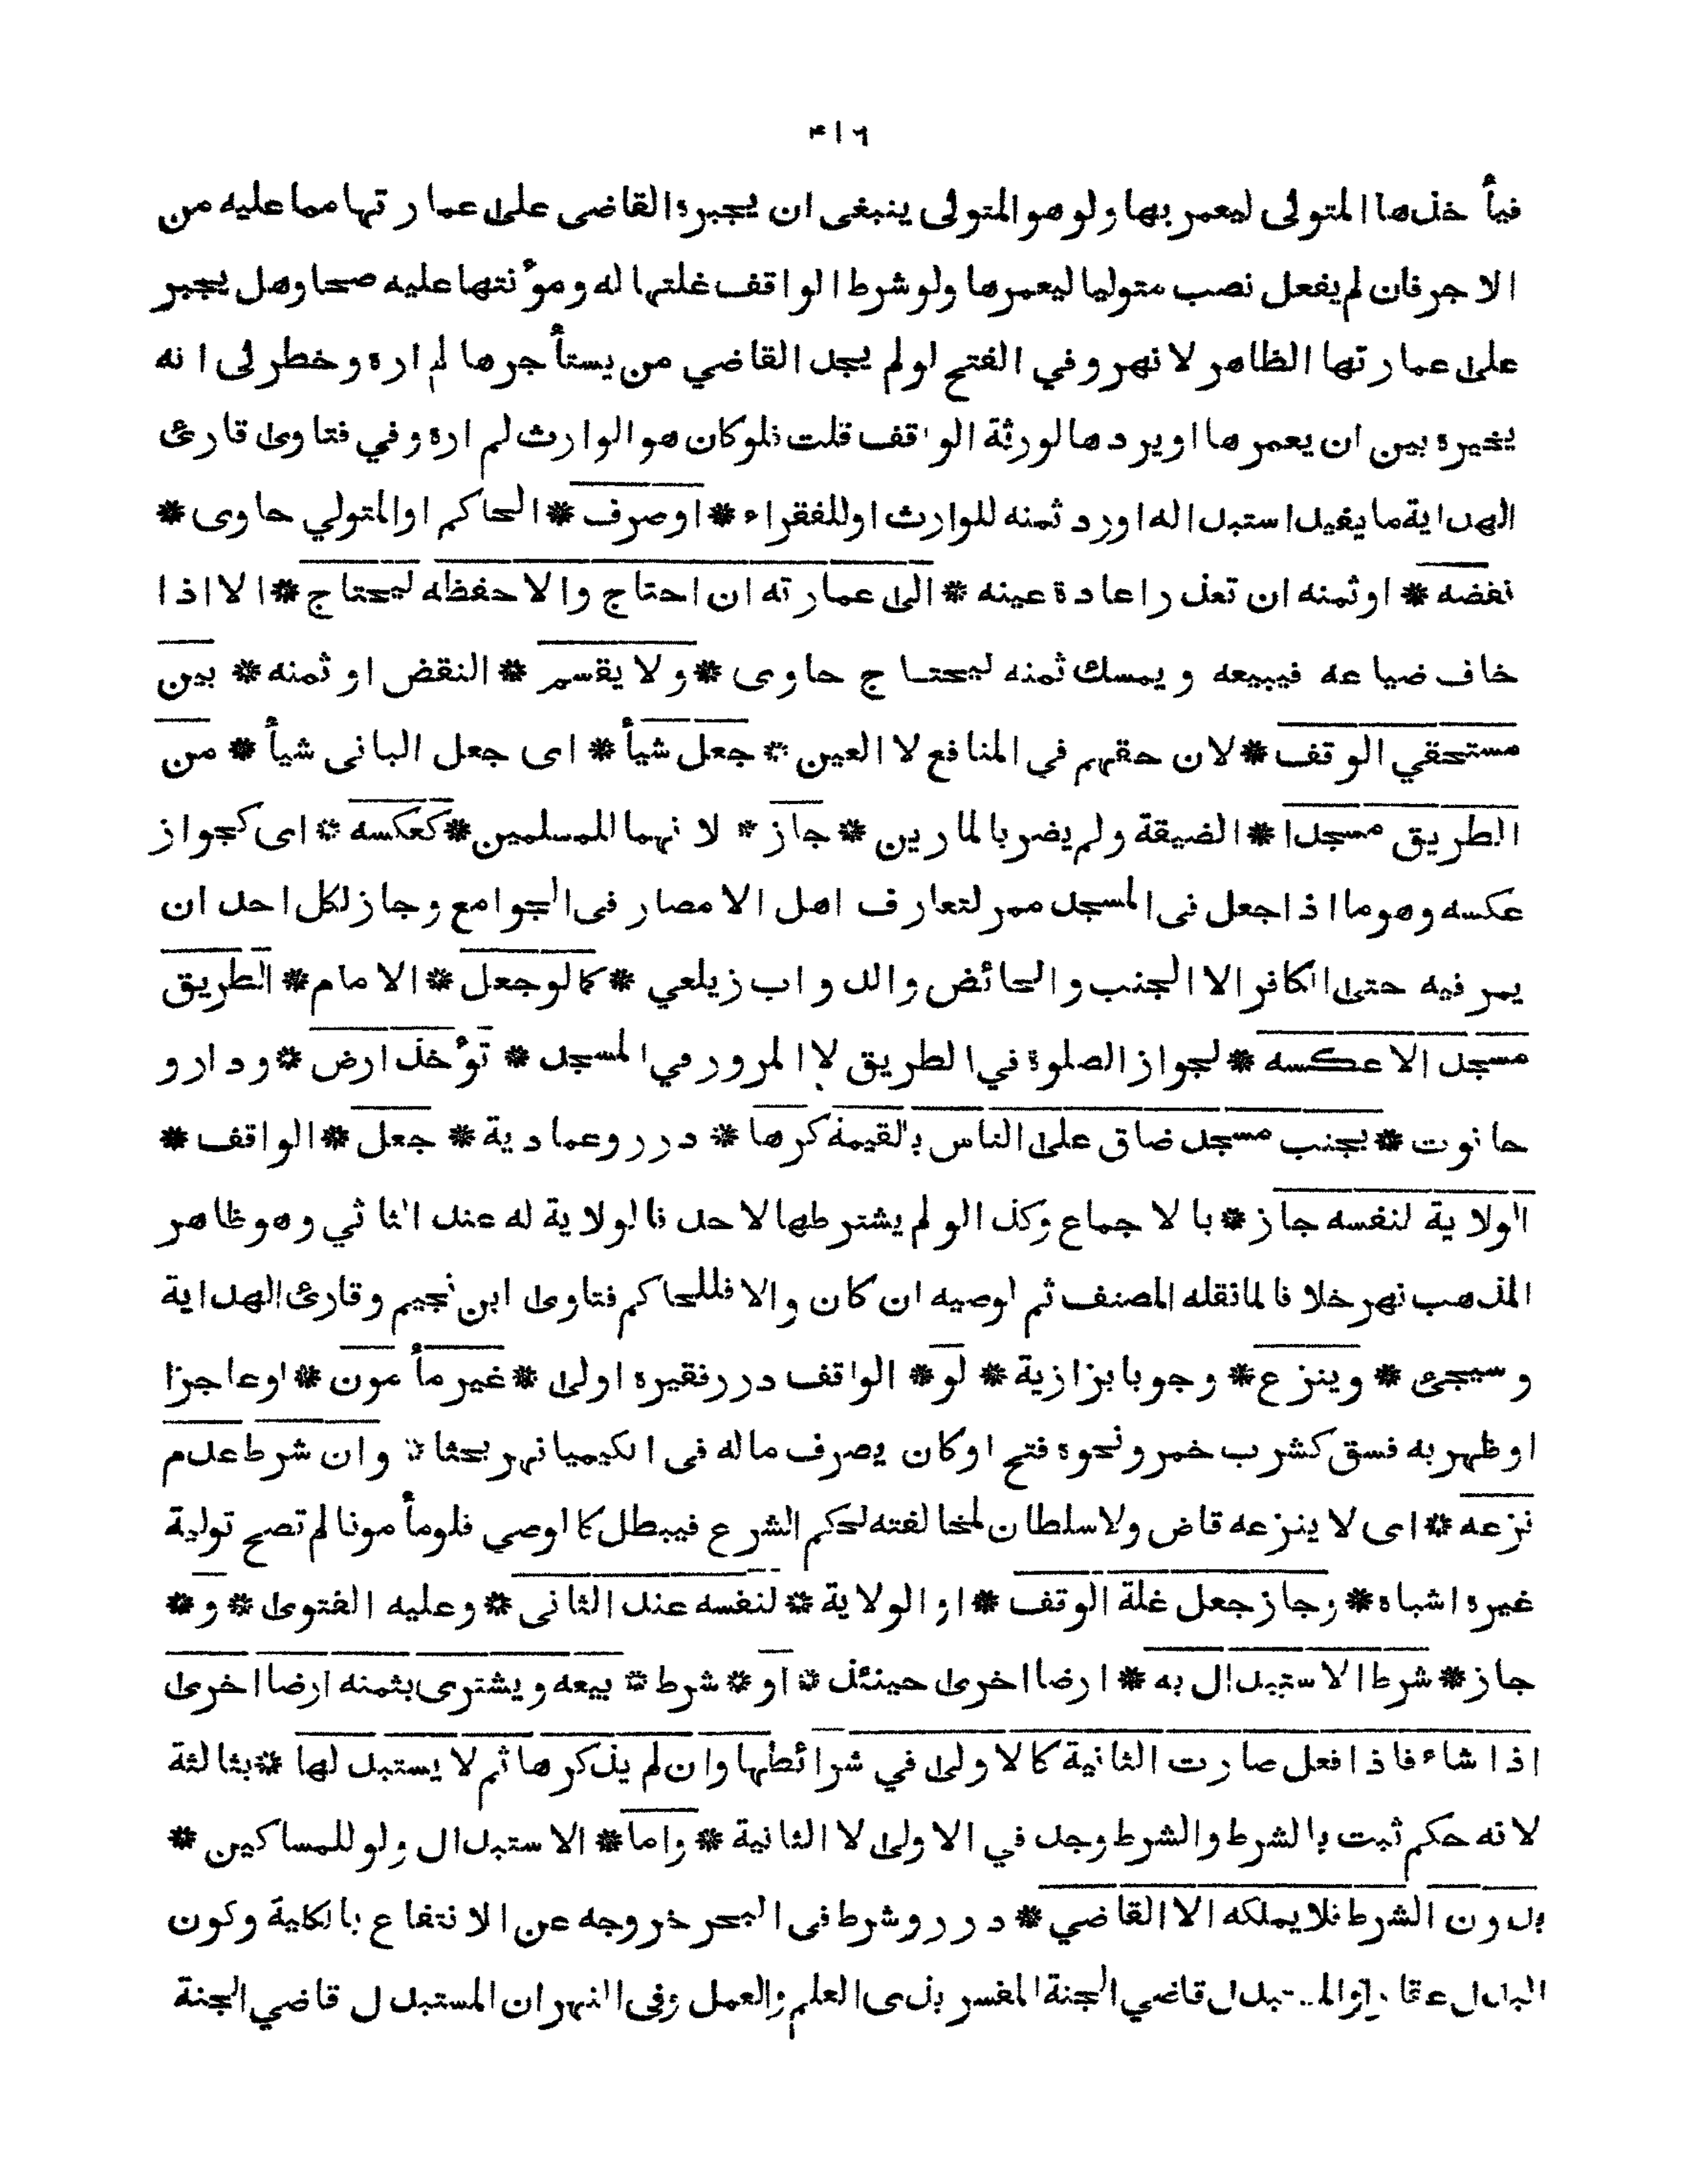 ۴۱۶
فيأ خذها المتولى ليعمر بها ولو هو المتولى ينبغى ان يجبره القاضى على عمارتها مما عليه من
الاجر فان لم يفعل نصب متوليا ليعمرها ولو شرط الواقف غلتها له ومؤنتها عليه صحا وهل يجبر
على عمارتها الظاهر لا نهر وفي الفتح لو لم يجد القاضي من يستأجرها لم اره وخطر لى انه
يخيره بين ان يعمرها او يردها لورثة الواقف قلت فلو كان هو الوارث لم اره وفي فتاوى قارئ
الهداية ما يفيد استبداله اورد ثمنه للوارث او للفقراء * او صرف * الحاكم او المتولي حاوى *
نقضه * او ثمنه ان تعذر اعادة عينه * الى عمارته ان احتاج والا حفظه ليحتاج * الا اذا
خاف ضياعه فيبيعه ويمسك ثمنه ليحتاج حاوى * ولا يقسم * النقض او ثمنه * بين
مستحقي الوقف * لان حقهم في المنافع لا العين * جعل شيأ * اى جعل البانى شيأ * من
الطريق مسجدا * الضيقة ولم يضر بالمارين * جاز * لانهما للمسلمين * كعكسه * اى كجواز
عكسه وهو ما اذا جعل فى المسجد ممر لتعارف اهل الامصار فى الجوامع وجاز لكل احد ان
يمر فيه حتى الكافر الا الجنب والحائض والدواب زيلعي * كما لو جعل * الامام * الطريق
مسجد الا عكسه * لجواز الصلوة في الطريق لا المرور في المسجد * تؤخذ ارض * ودار و
حانوت * بجنب مسجد ضاق على الناس بالقيمة كرها * درر وعمادية * جعل * الواقف *
الولاية لنفسه جاز * بالاجماع وكذا لو لم يشترطها لاحد فالولاية له عند الثاني وهو ظاهر
المذهب نهر خلافا لما نقله المصنف ثم لوصيه ان كان والا فللحاكم فتاوى ابن نجيم وقارئ الهداية
وسيجئ * وينزع * وجوبا بزازية * لو * الواقف درر فغيره اولى * غير مأمون * او عاجزا
او ظهر به فسق كشرب خمر ونحوه فتح او كان يصرف ماله فى الكيميا نهر بحثا * وان شرط عدم
نزعه * اى لا ينزعه قاض ولا سلطان لمخالفته لحكم الشرع فيبطل كالوصي فلو مأمونا لم تصح تولية
غيره اشباه * وجاز جعل غلة الوقف * او الولاية * لنفسه عند الثانى * وعليه الفتوى * و *
جاز * شرط الاستبدال به * ارضا اخرى حينئذ * او * شرط * بيعه ويشترى بثمنه ارضا اخرى
اذا شاء فاذا فعل صارت الثانية كالاولى في شرائطها وان لم يذكرها ثم لا يستبدلها * بثالثة
لانه حكم ثبت بالشرط والشرط وجد في الاولى لا الثانية * واما * الاستبدال ولو للمساكين *
بدون الشرط فلا يملكه الا القاضي * درر وشرط فى البحر خروجه عن الانتفاع بالكلية وكون
البدل عقارا والمستبدل قاضي الجنة المفسر بذى العلم والعمل وفى النهر ان المستبدل قاضي الجنة